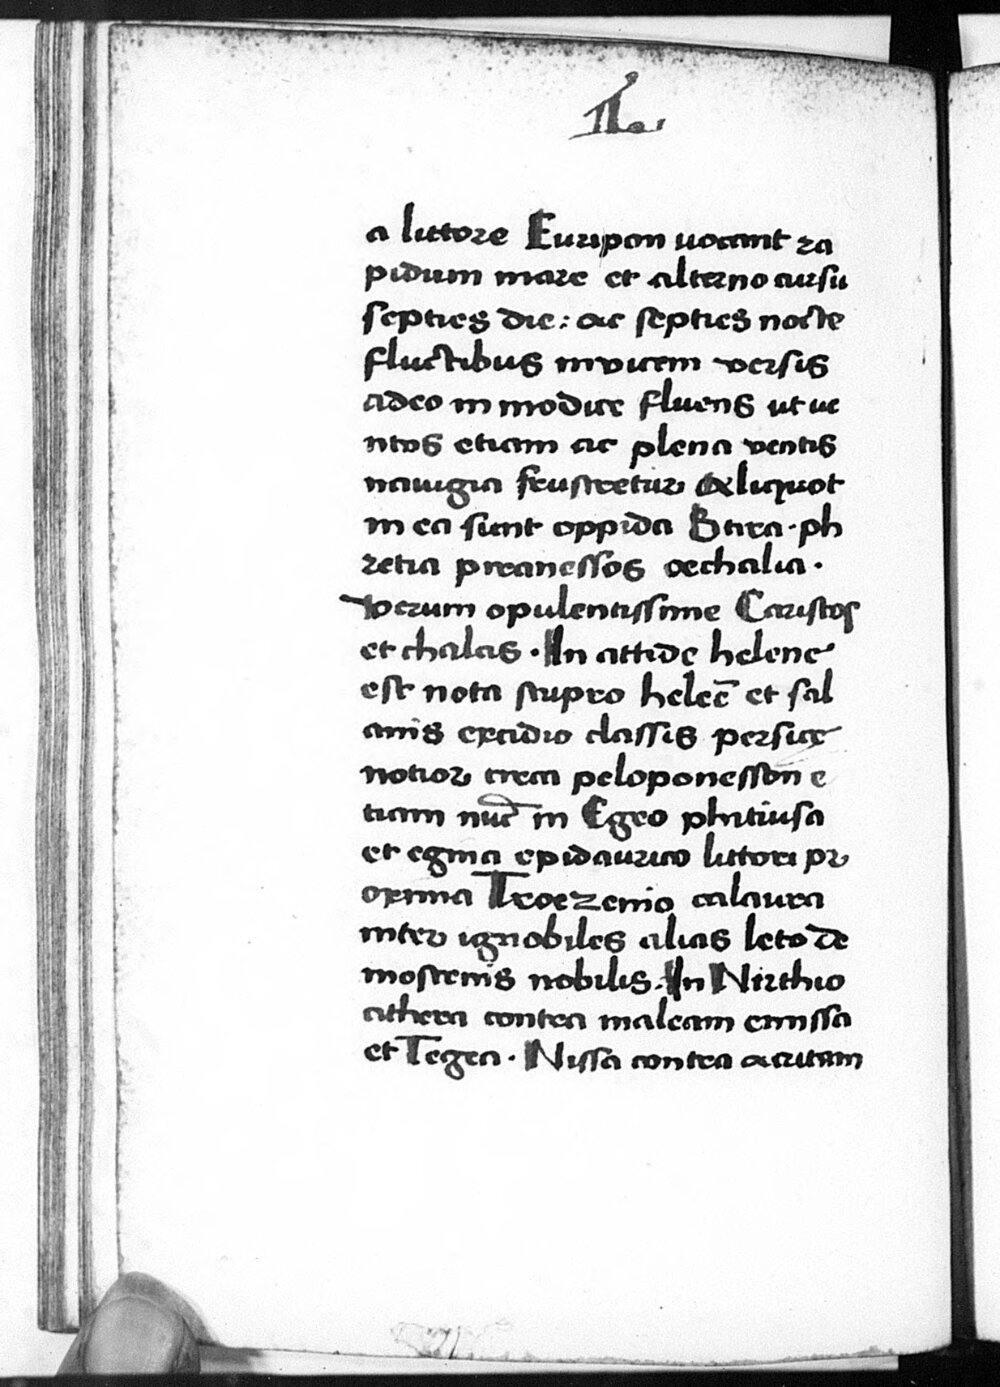 a littore Euripon uocant ra
pidum mare et alterno cursu
septies die: ac septies nocte
fluctibus invicem versis
adeo inmodice fluens ut ue
ntos etiam ac plena ventis
nauigia frustretur Aliquot
in ea sunt oppida Stira · ph
retia preanessos oechalia ·
verum opulentissime Caristos
et chalas · In attide helene
est nota stupro helec̄ et sal
amis excidio classis persice
notior circa peloponesson e
tiam nūc in Egeo phitiusa
et egina epidaurico littori pr
oxima Troezenio calaura
inter ignobiles alias leto de
mostenis nobilis. In Nirthio
athera contra maleam emissa
et Tegea · Nissa contra acritam